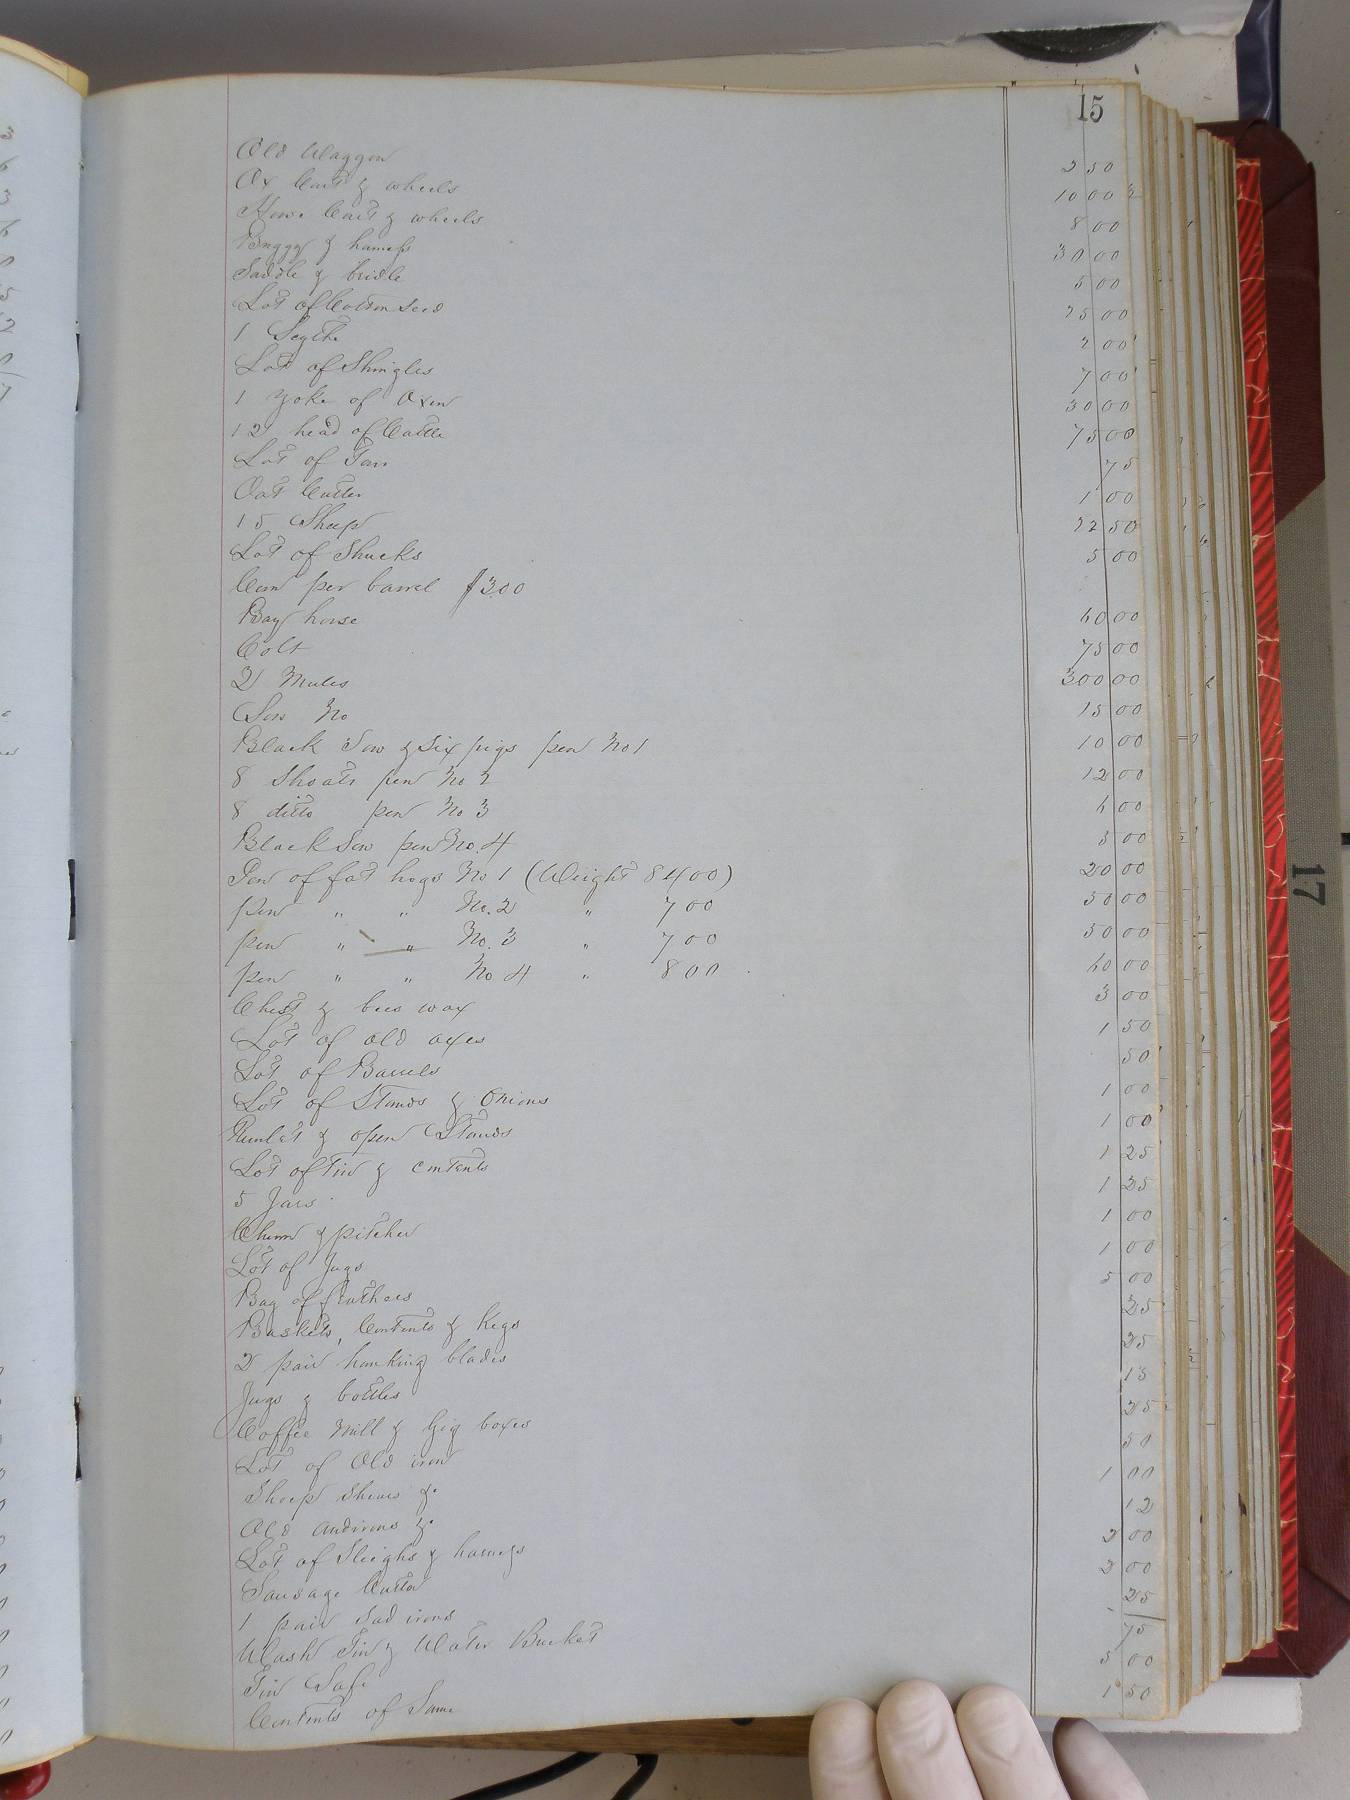 15
Old Waggon 2 50
Ox Cart & wheels 10 00
Horse Cart & wheels 8 00
Buggy & harness 30 00
Saddle & bridle 5 00
Lot of Cotton Seed 25 00
1 Scythe 2 00
Lot of Shingles 7 00
1 Yoke of Oxen 30 00
12 head of Cattle 75 00
Lot of Tar 75
Oat Cutter 1 00
15 Sheep 22 50
Lot of Shucks 5 00
Corn per barrel $3.00
Bay horse 60 00
Colt 75 00
2 Mules 300 00
Sow No 15 00
Black Sow & Six pigs pen No 1 10 00
8 Shoats pen No 2 12 00
8 ditto pen No 3 6 00
Black Sow pen No. 4 5 00
Pen of fat hogs No 1 (Weight 8400) 20 00
pen " " No. 2 " 700 50 00
pen " " No. 3 " 700 50 00
pen " " No 4 " 800 60 00
Chest & bees wax 3 00
Lot of old axes 1 50
Lot of Barrels 50
Lot of Stands & Onions 1 00
& open Stands 1 00
Lot of Tin & contents 1 25
5 Jars 1 25
Churn & pitcher 1 00
Lot of Jugs 1 00
Bag of feathers 5 00
Baskets, Contents & Kegs 25
2 pair hanking blades 25
Jugs & bottles 15
Coffee Mill & Gig boxes 25
Lot of Old iron 50
Sheep Shears &c 1 00
Old andirons &c 12
Lot of Sleighs & harness 2 00
Sausage Cutter 2 00
1 pair Sad irons 25
Wash Tin & Water Bucket 75
Tin Safe 5 00
Contents of Same 1 50
17